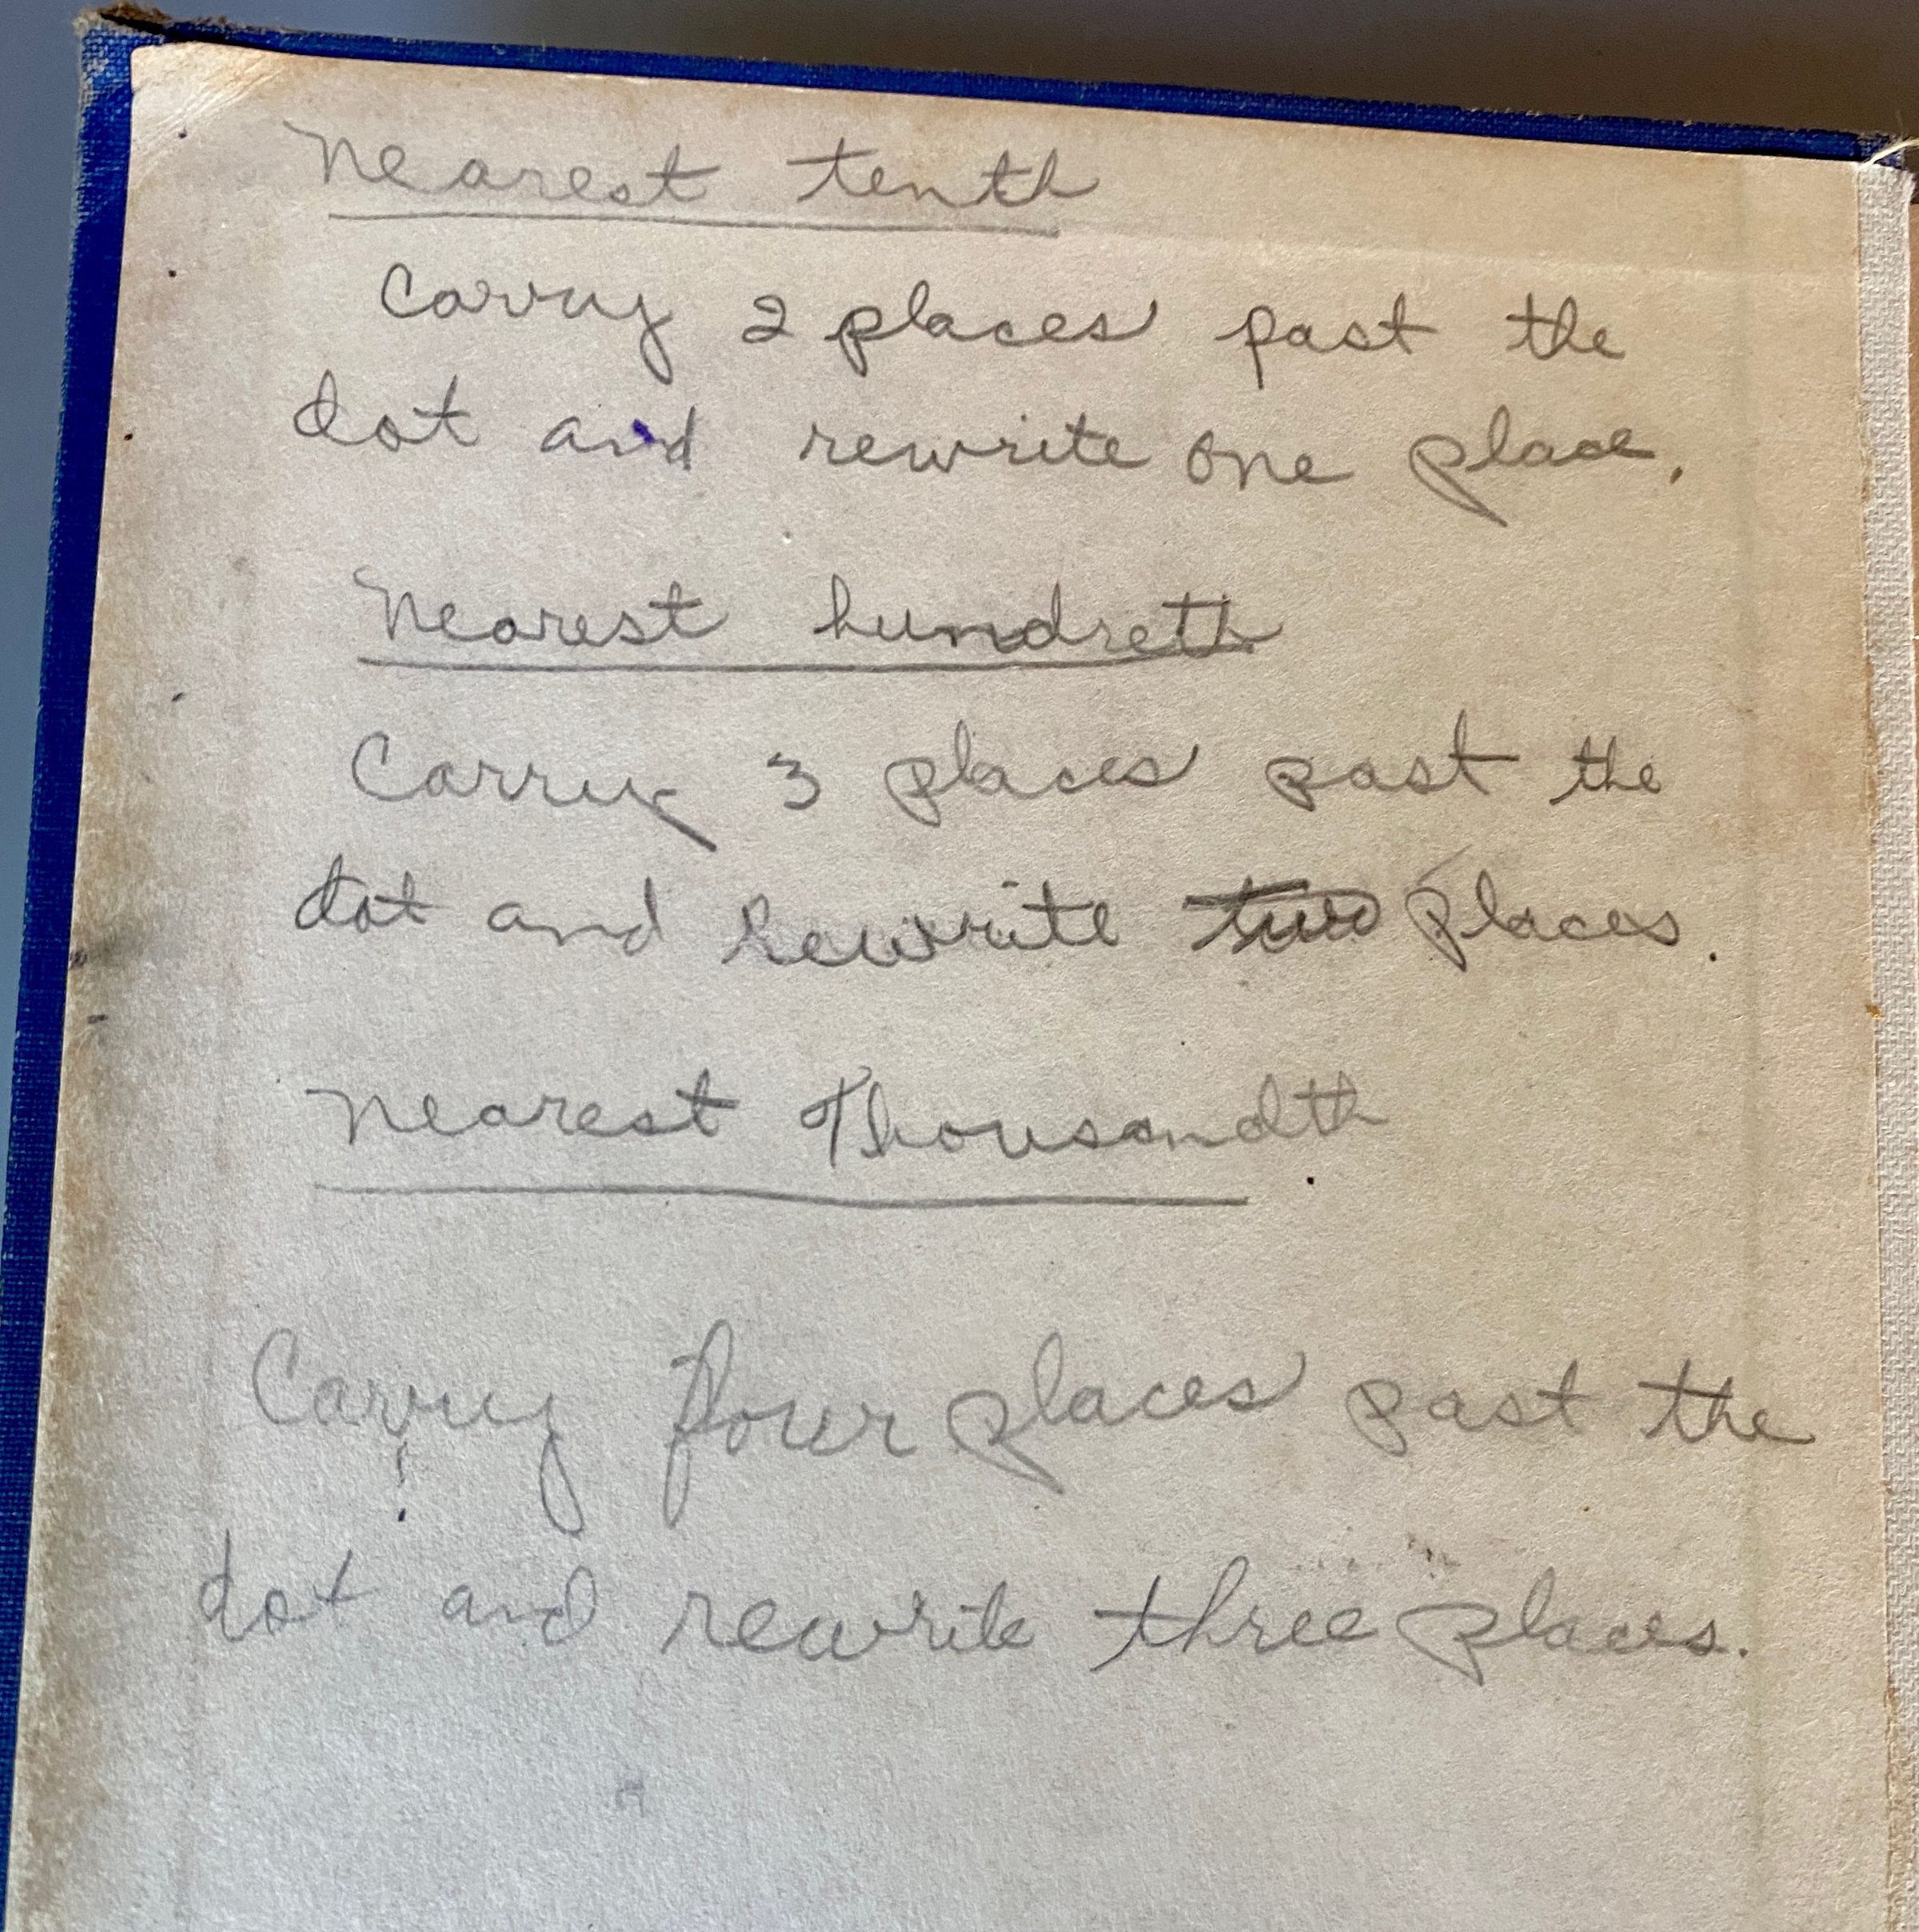 Nearest tenth
Carry 2 places past the
dot and rewrite one place.
Nearest hundreth
Carry 3 places past the
dot and rewrite two places.
Nearest Thousandth
Carry four places past the
dot and rewrite three places.